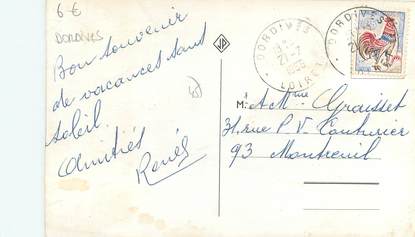 6 €
DORDIVES
Bon souvenir
de vacances sans
soleil.
Amitiés
René
DORDIVES
21-7
1966
LOIRET
DORDIVES
M. et Mme Graisset
31, rue P. V. Couturier
93 Montreuil